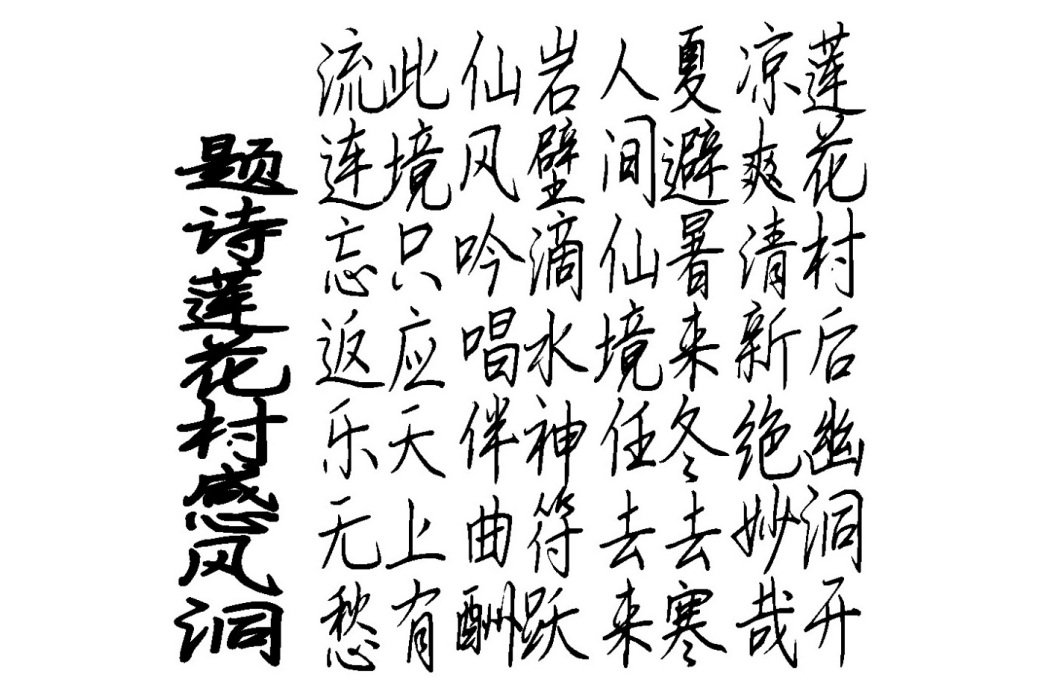 莲花村后幽洞开
凉爽清新绝妙哉
夏避暑来冬去寒
人间仙境任去来
岩壁滴水神符跃
仙风吟唱伴曲酬
此境只应天上有
流连忘返乐无愁
题诗莲花村感风洞